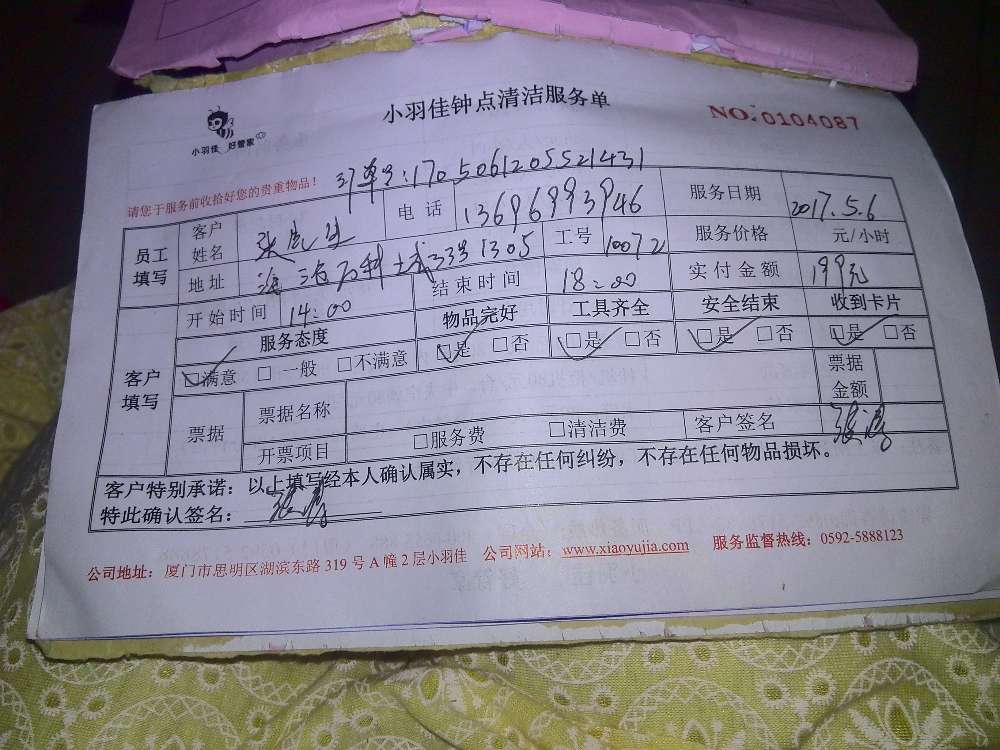 小羽佳 好管家
小羽佳钟点清洁服务单
NO:0104087
请您于服务前收拾好您的贵重物品！
订单号:1705061205521431
员工填写 客户姓名 张先生 电话 13696993946 服务日期 2017.5.6
地址 1305 工号 10072 服务价格 元/小时
开始时间 14:00 结束时间 18:00 实付金额 199元
客户填写 服务态度 物品完好 工具齐全 安全结束 收到卡片
□满意 □一般 □不满意 □是 □否 □是 □否 □是 □否 □是 □否
票据 票据名称 票据金额
开票项目 □服务费 □清洁费 客户签名
客户特别承诺：以上填写经本人确认属实，不存在任何纠纷，不存在任何物品损坏。
特此确认签名：
公司地址：厦门市思明区湖滨东路 319 号 A 幢 2 层小羽佳 公司网站：www.xiaoyujia.com 服务监督热线：0592-5888123